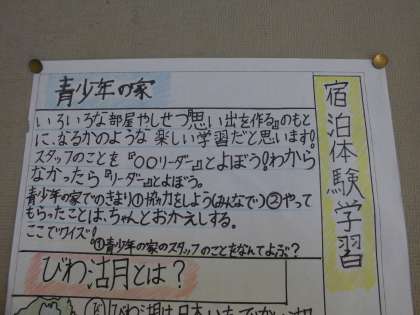 宿泊体験学習
青少年の家
いろいろな部屋やしせつ『思い出を作る』のもと
に、なるかのような楽しい学習だと思います!
スタッフのことを『○○リーダー』とよぼう!わから
なかったら『リーダー』とよぼう。
青少年の家でのきまり①協力をしよう(みんなで)②やって
もらったことは、ちゃんとおかえしする。
ここでクイズ!
①青少年の家のスタッフのことをなんてよぶ?
びわ湖とは?
びわ湖は日本